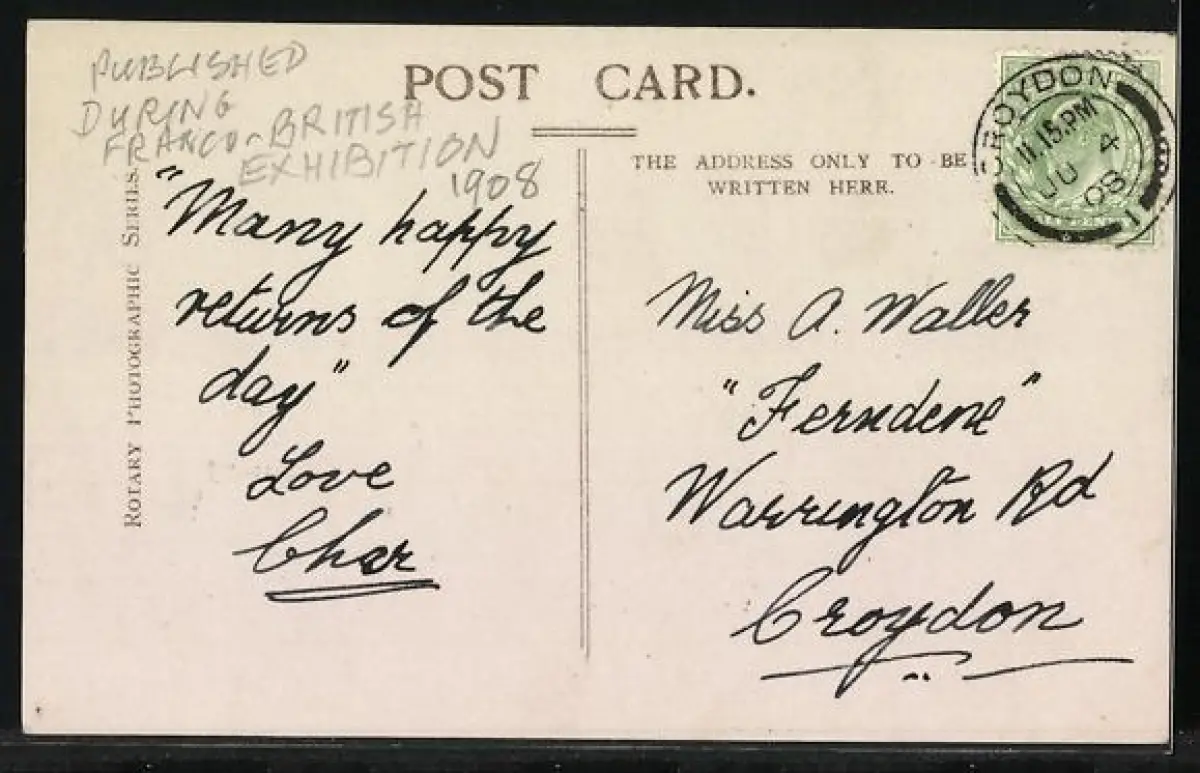 PUBLISHED
DURING
FRANCO-BRITISH
EXHIBITION
1908
POST CARD.
THE ADDRESS ONLY TO BE
WRITTEN HERE.
ROTARY PHOTOGRAPHIC SERIES.
"Many happy
returns of the
day"
Love
Char
CROYDON
11.15.PM
JU 4
08
1
Miss A. Waller
"Ferndene"
Warrington Rd
Croydon